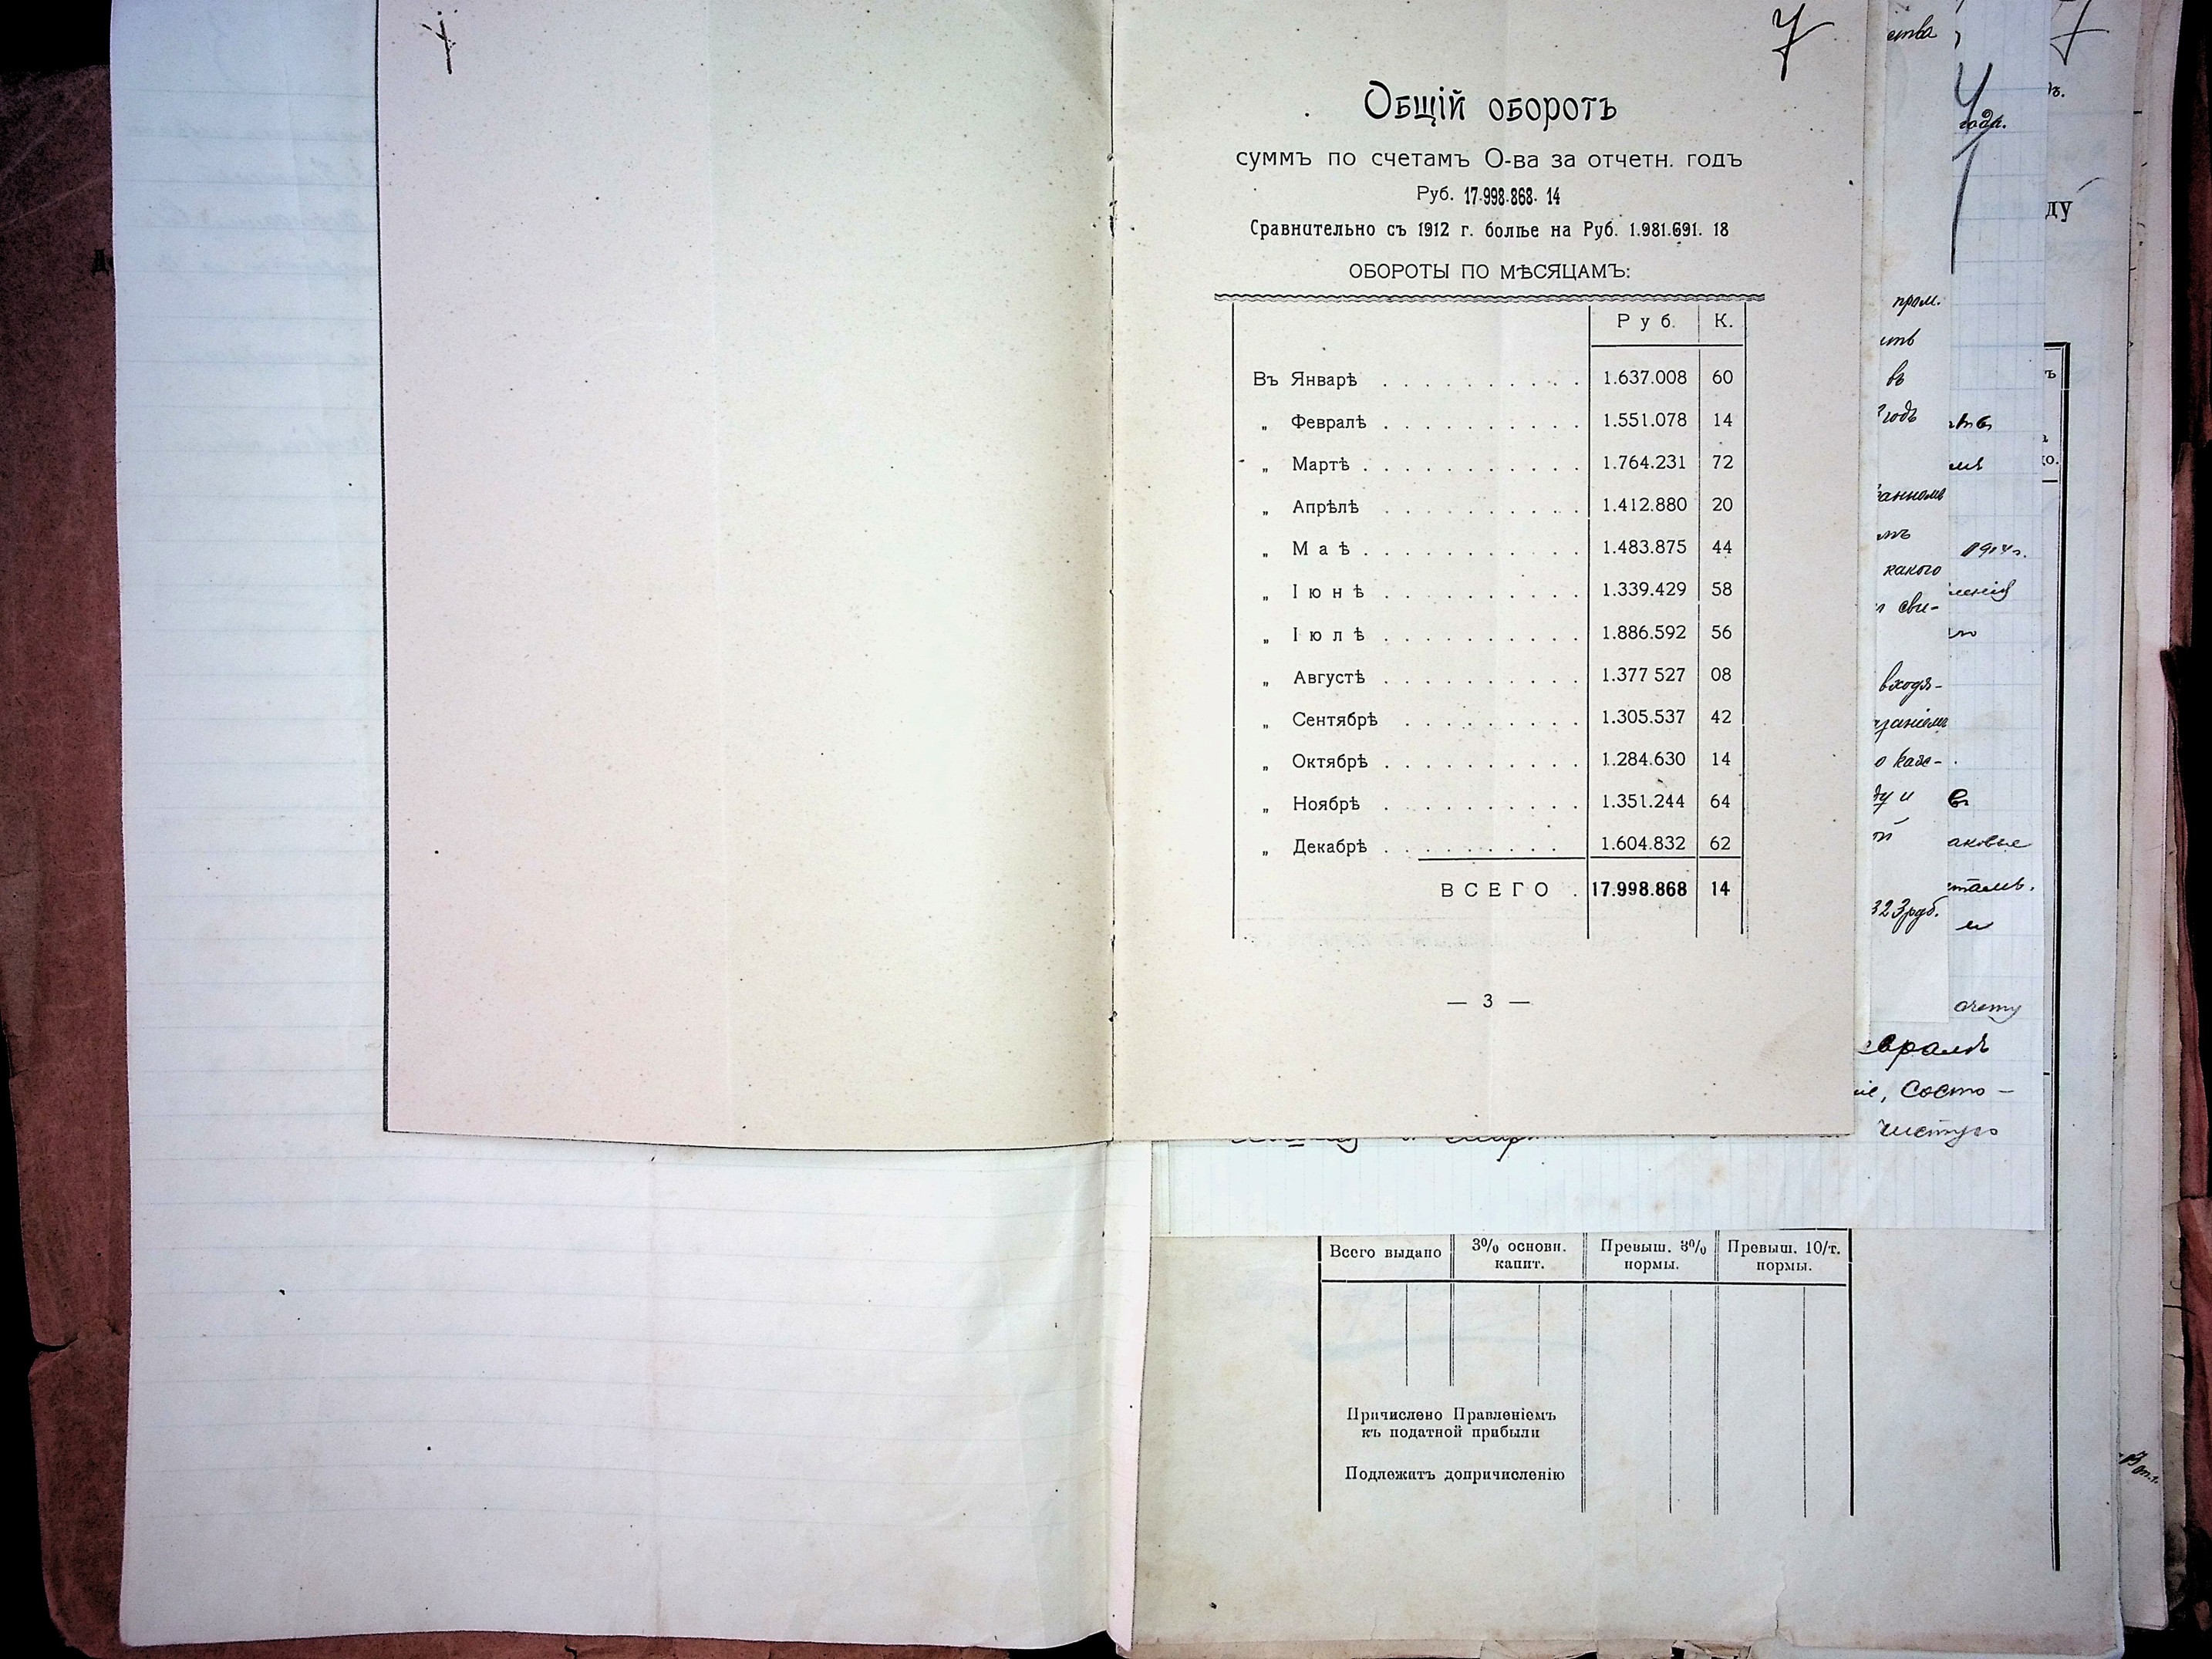 7
Общій оборотъ
суммъ по счетамъ О-ва за отчетн. годъ
Руб. 17.998.868. 14
Сравнительно съ 1912 г. болѣе на Руб. 1.981.691. 18
ОБОРОТЫ ПО МѢСЯЦАМЪ:
Руб. К.
Въ Январѣ . . . . . . . . . . 1.637.008 60
„ Февралѣ . . . . . . . . . . 1.551.078 14
„ Мартѣ . . . . . . . . . . . 1.764.231 72
„ Апрѣлѣ . . . . . . . . . . 1.412.880 20
„ Маѣ . . . . . . . . . . . 1.483.875 44
„ Іюнѣ . . . . . . . . . . 1.339.429 58
„ Іюлѣ . . . . . . . . . . 1.886.592 56
„ Августѣ . . . . . . . . . . 1.377 527 08
„ Сентябрѣ . . . . . . . . . 1.305.537 42
„ Октябрѣ . . . . . . . . . . 1.284.630 14
„ Ноябрѣ . . . . . . . . . . 1.351.244 64
„ Декабрѣ . . . . . . . . . 1.604.832 62
ВСЕГО . 17.998.868 14
— 3 —
ства
7
года.
ду
пром.
въ
годъ
1914 г.
какого
сви-
входя-
о каз-
ду и
323 руб.
и
счету
Состо-
чистую
Всего выдано 3% основн. капит. Превыш. 3% нормы. Превыш. 10/т. нормы.
Причислено Правленіемъ
къ податной прибыли
Подлежитъ допричисленію